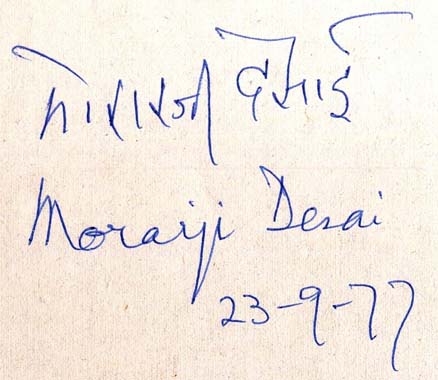 मोरारजी देसाई
Morarji Desai
23-9-77